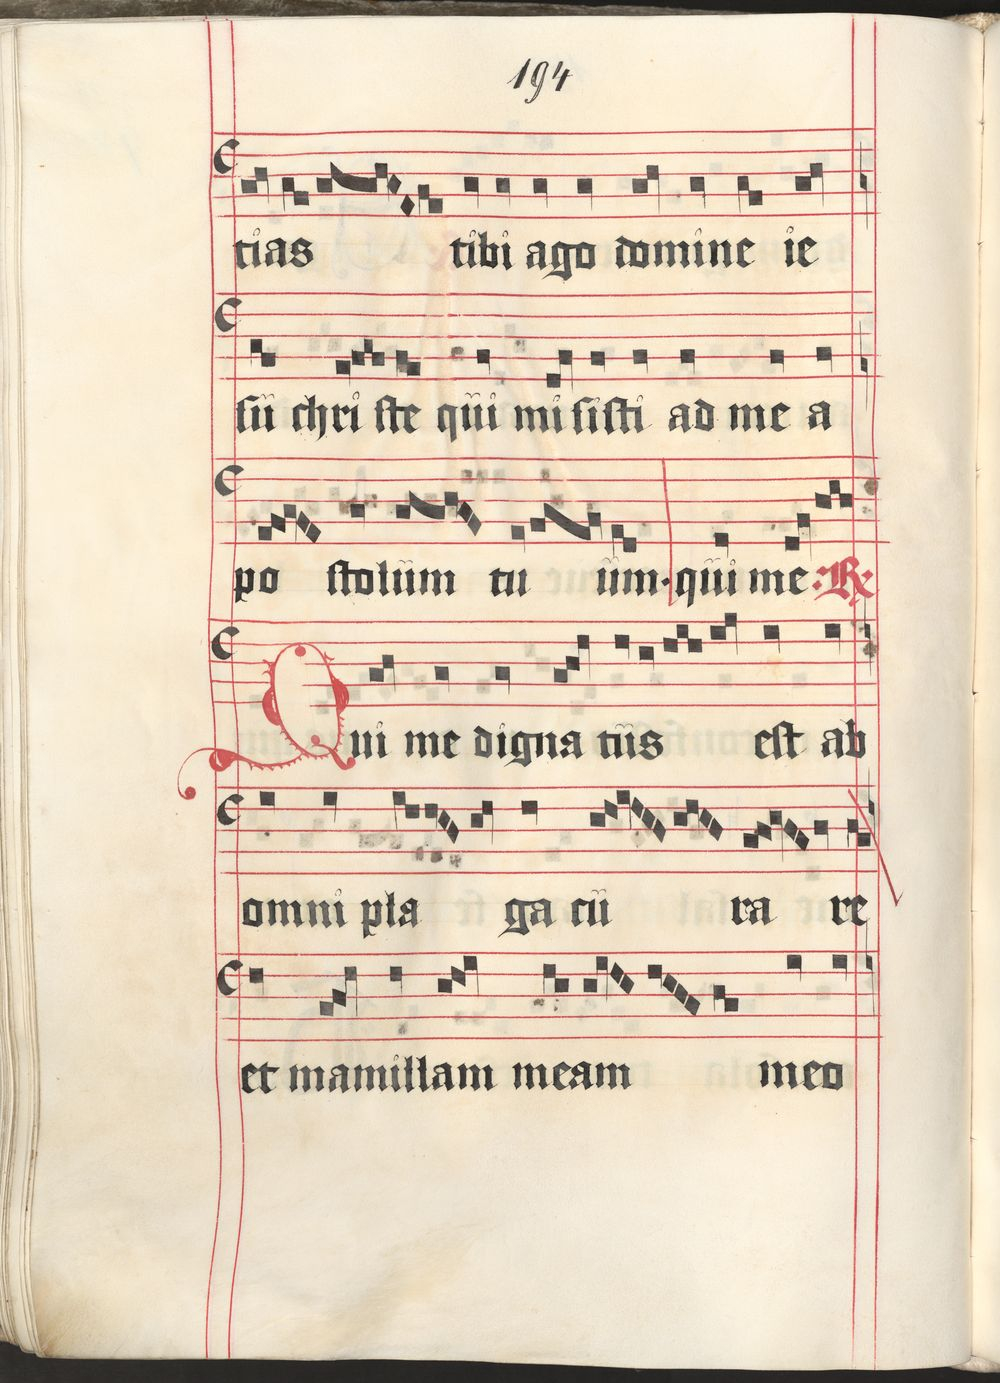 194
tias tibi ago domine ie
su chri ste qui misisti ad me a
po stolum tu um. qui me: R
Qui me digna tus est ab
omni pla ga cu ra re
et mamillam meam meo